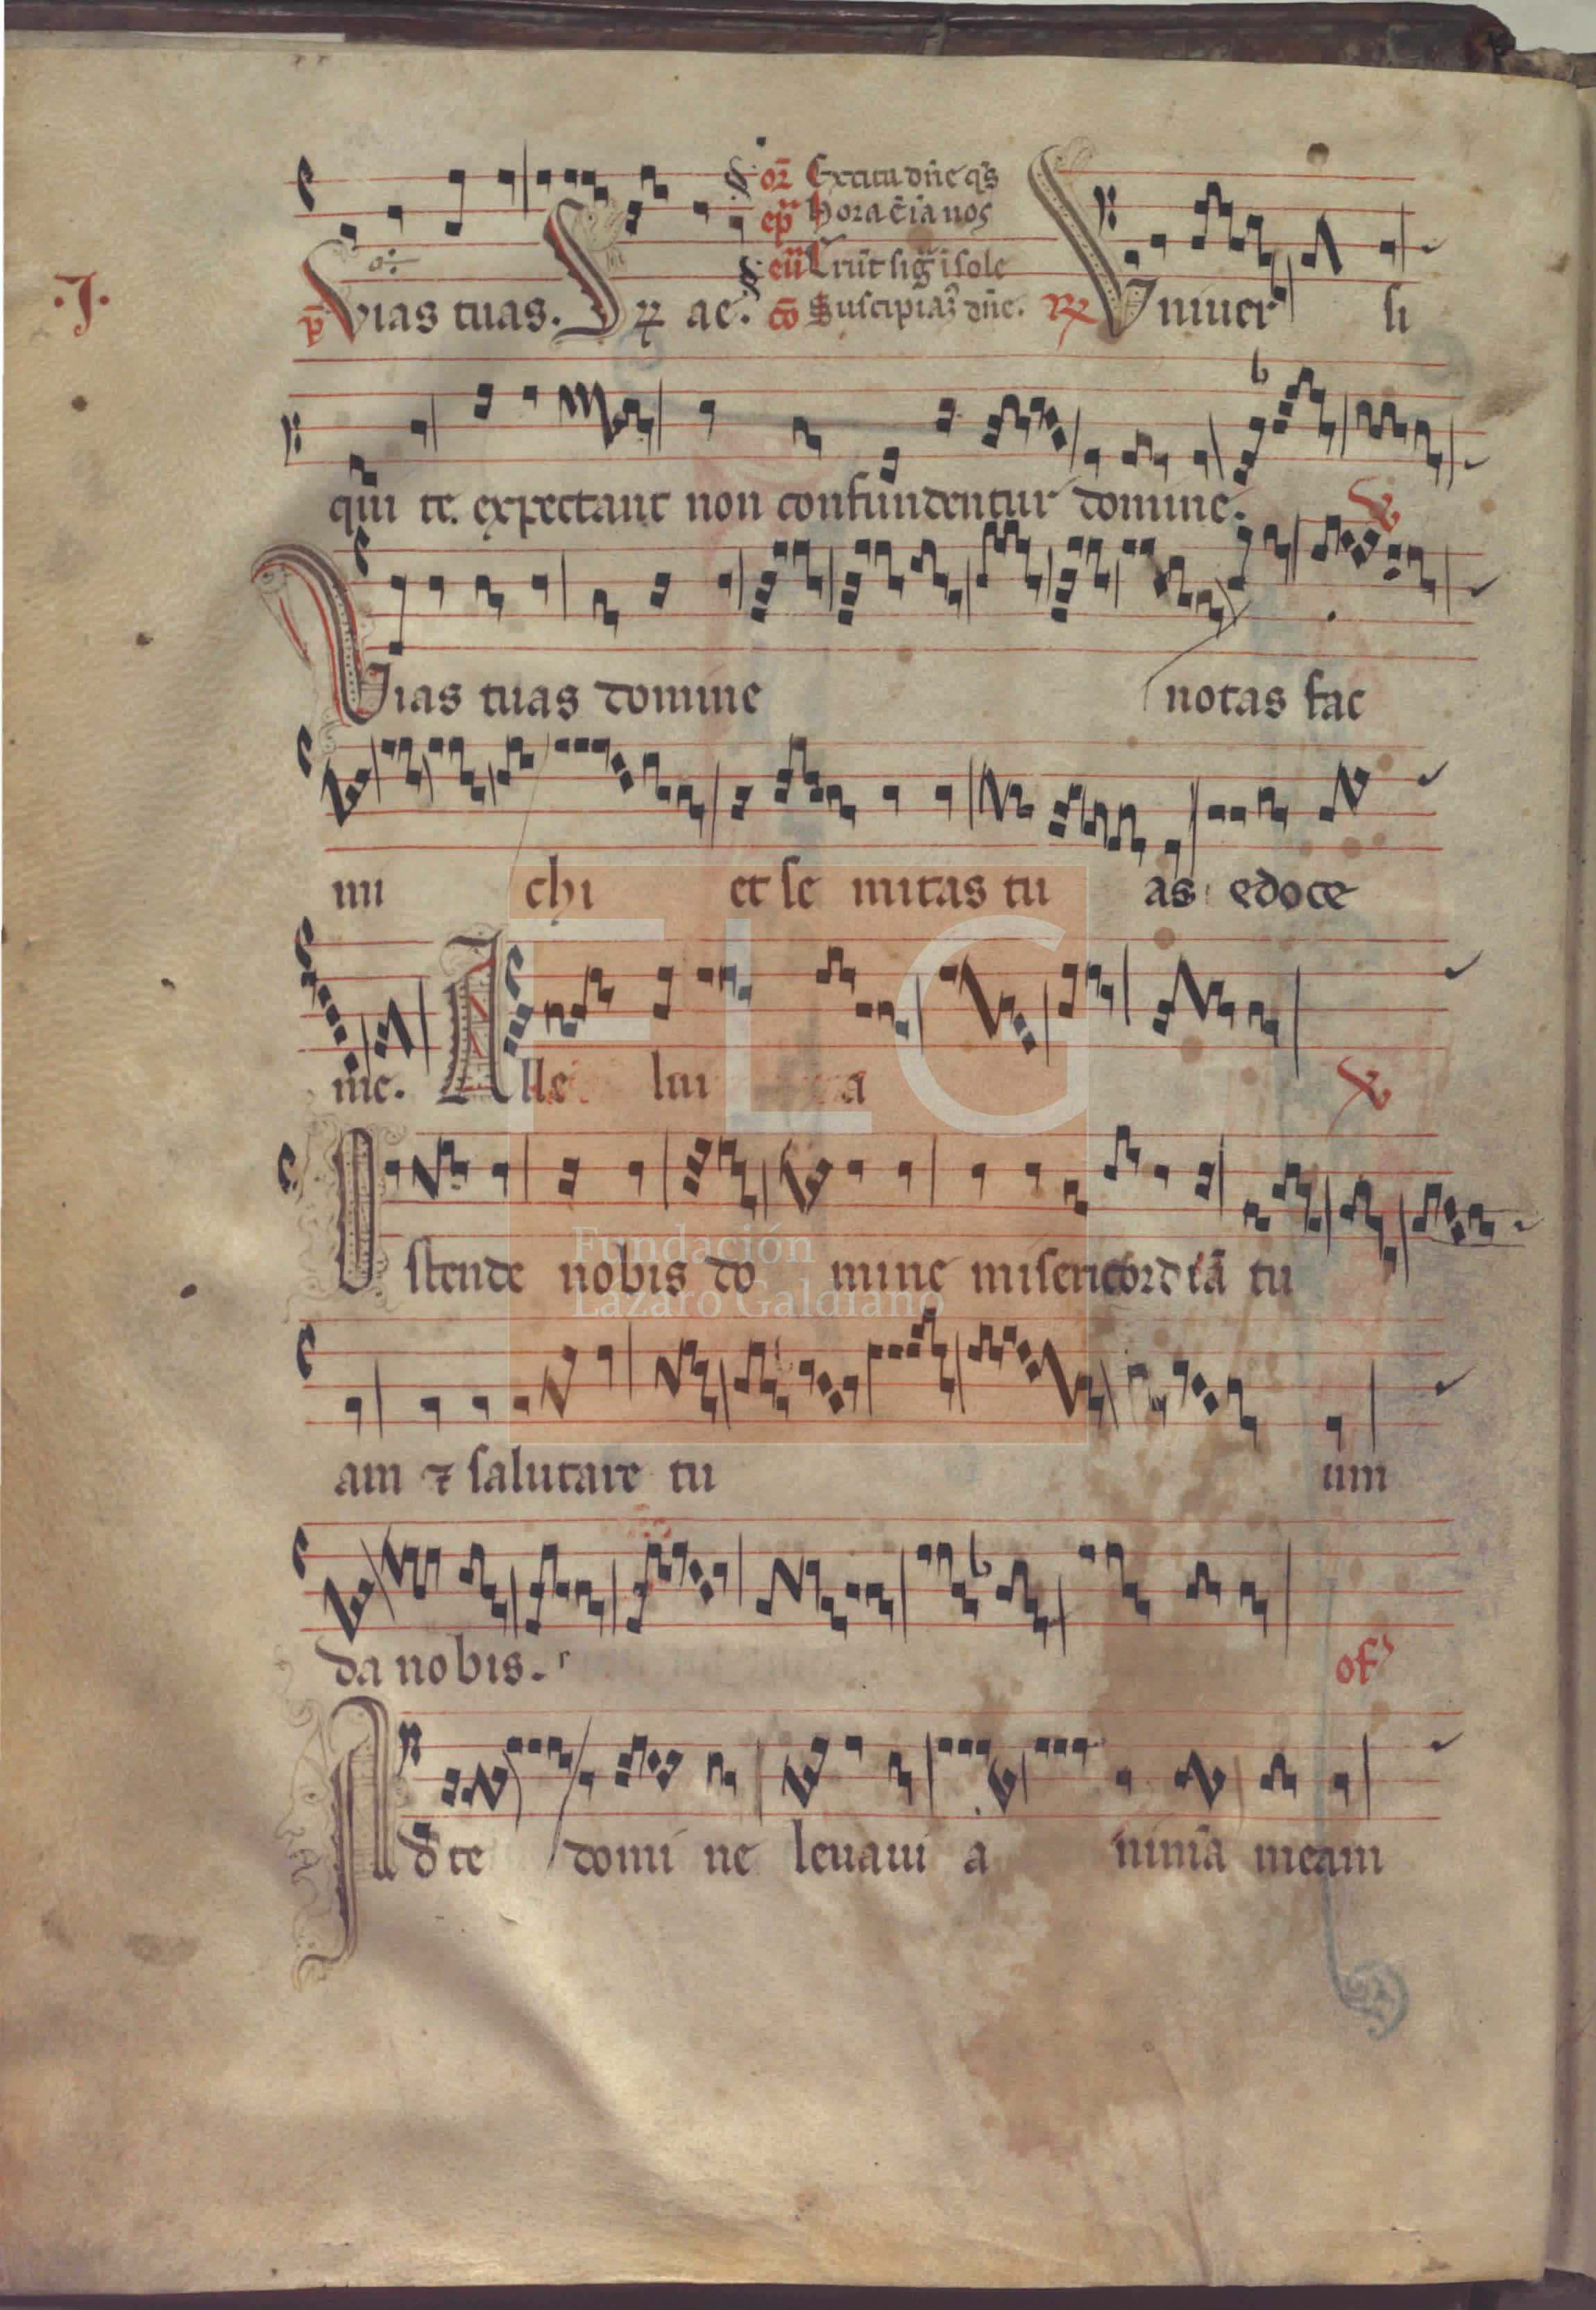 or̄ Excita dñe qs̄
ep̄ hora ē ia nos
eu̅ Erūt sig̅ i sole
·I·
p̄ Vias tuas. S ꝝ ae. co̅ Suscipiaꝫ dñe. ℟ Vniuer si
qui te expectant non confundentur domine. ℣
Vias tuas domine notas fac
mi chi et se mitas tu as edoce
me. Alle lui a ℣
Ostende nobis do mine misericordiā tu
am ⁊ salutare tu um
da nobis. of
Ad te domi ne leuaui a nimā meam
FLG
Fundación
Lázaro Galdiano